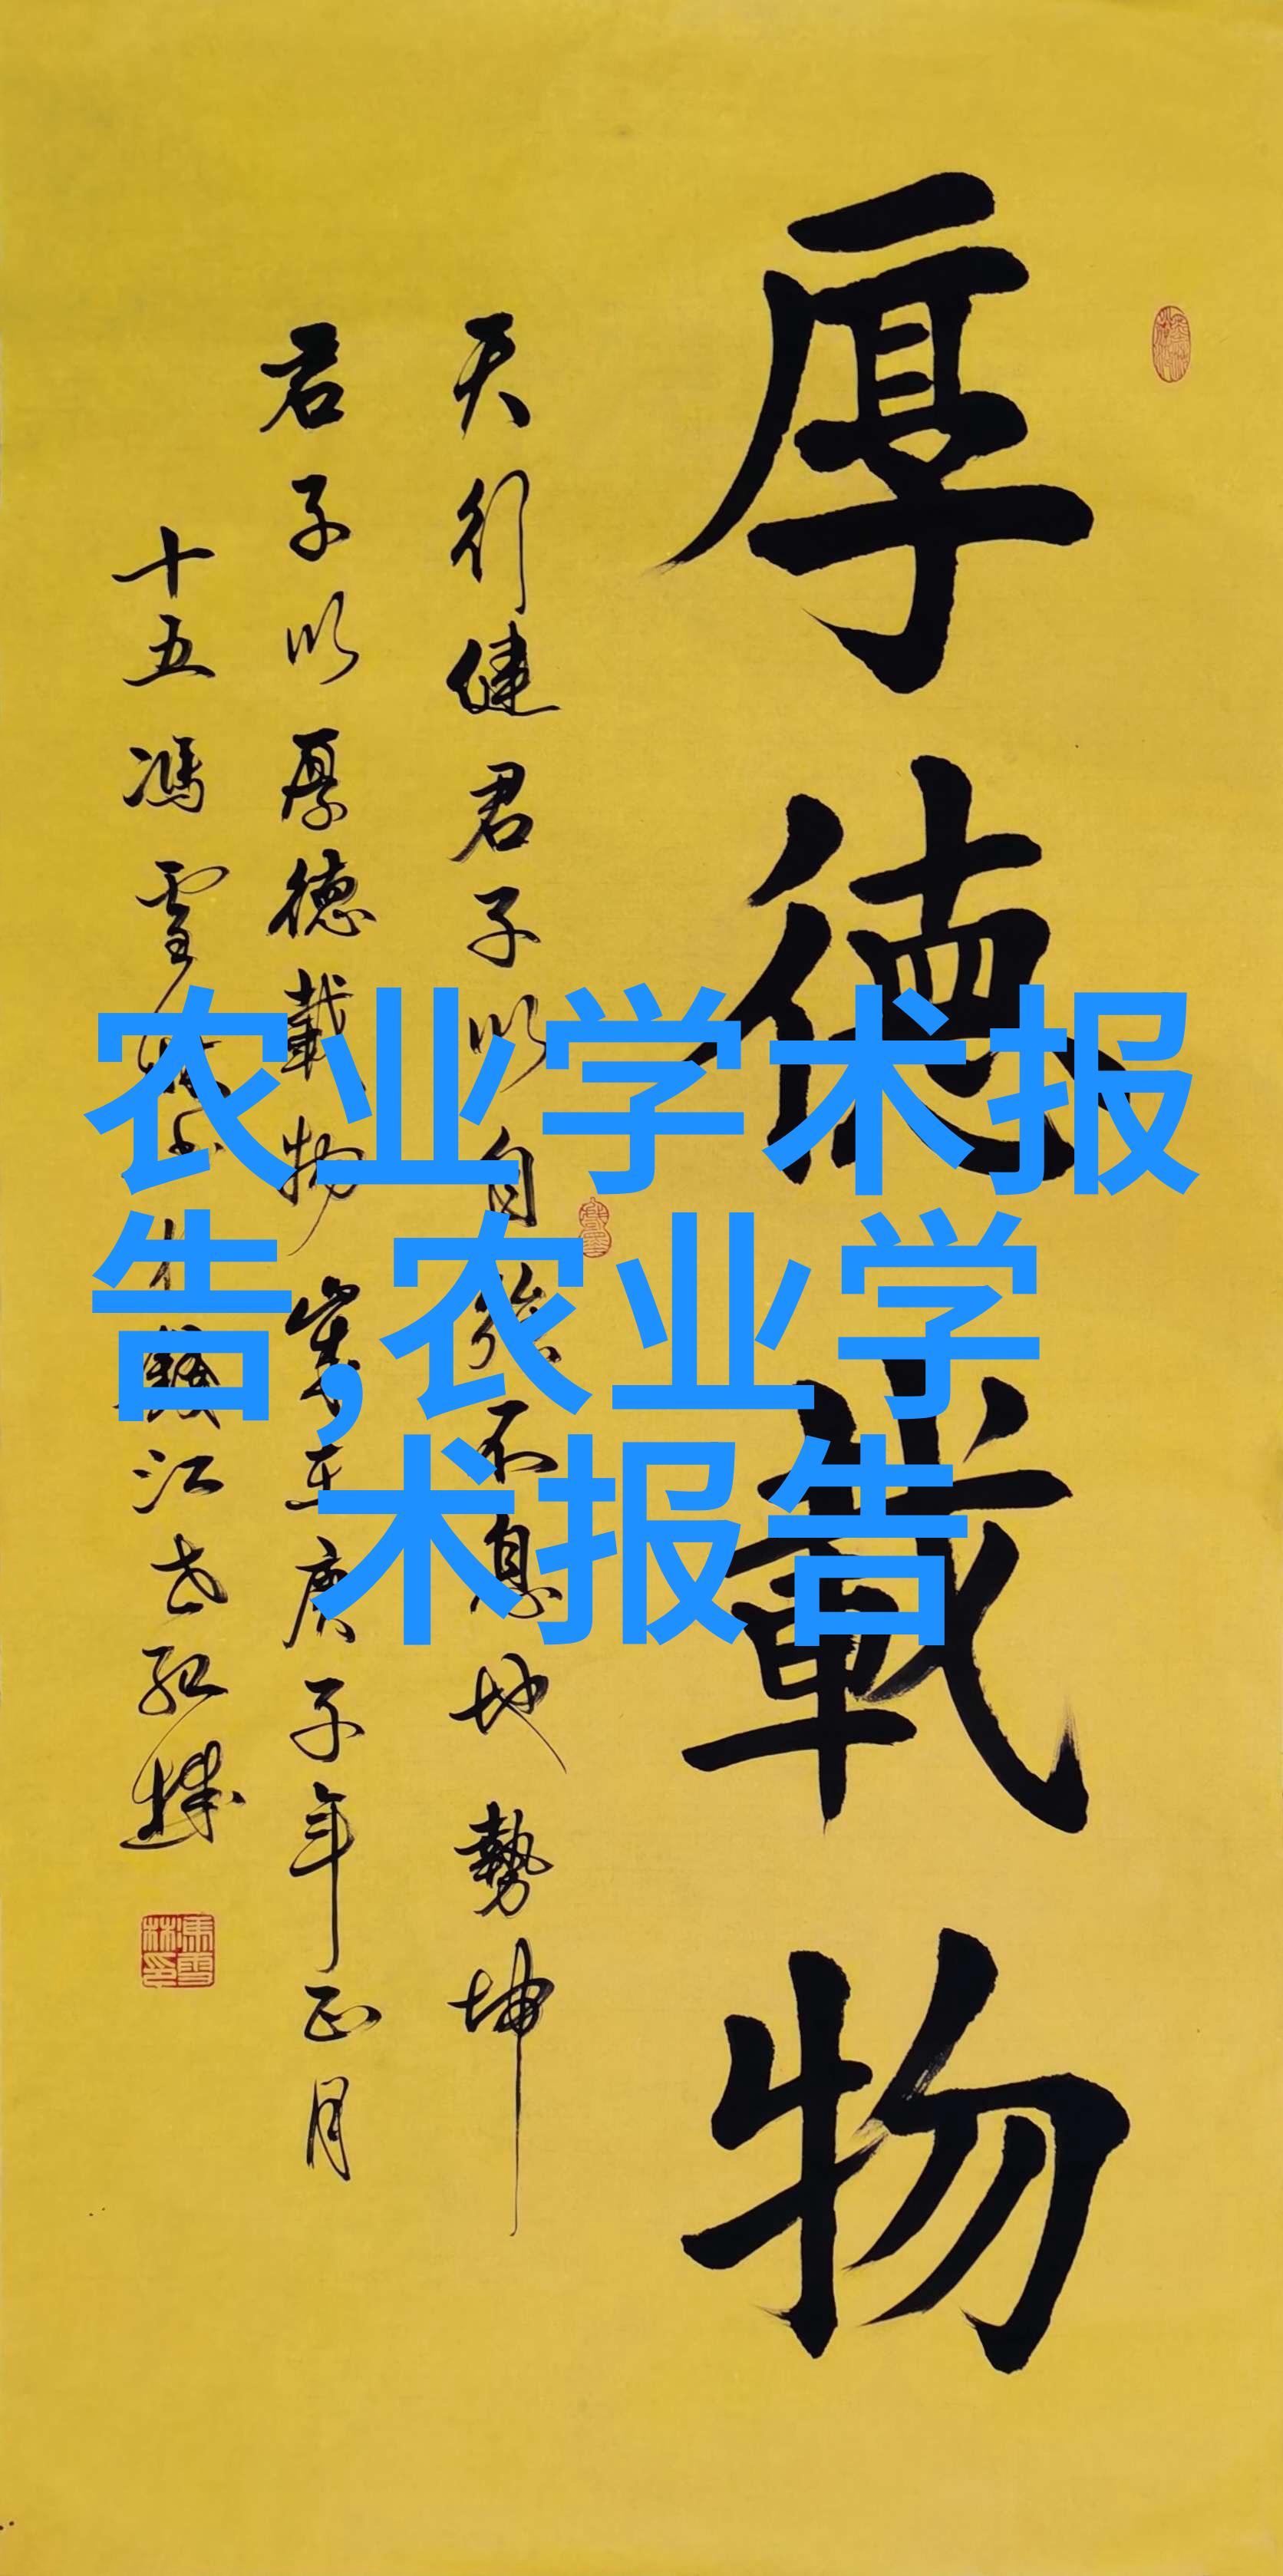 厚德載物
天行健君子以自強不息地勢坤
君子以厚德載物 歲在庚子年正月
十五馮雪林
農业学术报
告,农业学
术报告